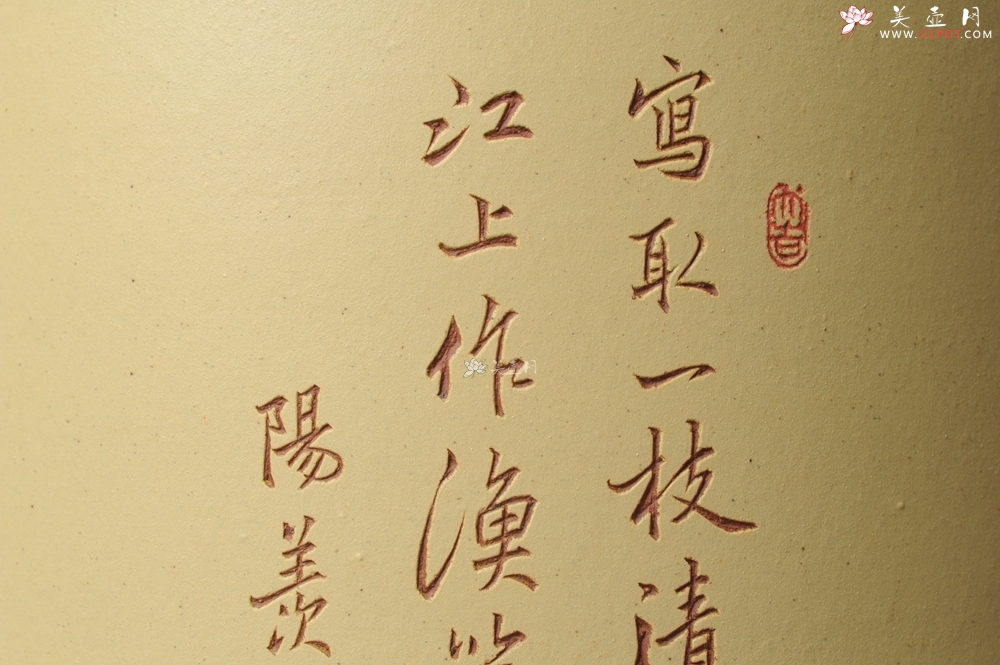 寫取一枝清
江上作漁
陽羨
美壶网
WWW.
.COM
美壶网